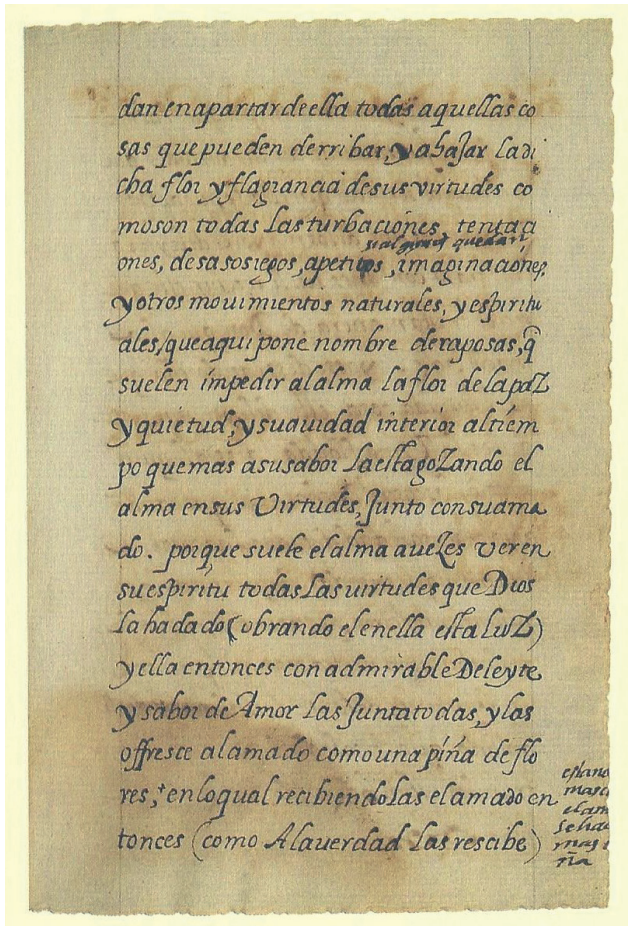 dan en apartar de ella todas aquellas co
sas que pueden derribar, y abaJar la di
cha flor y flagrancia de sus virtudes co
mo son todas las turbaciones, tentaci
si algunas quedan
ones, desasosiegos, apetitos, imaginaciones,
y otros mouimientos naturales, y espiritu
ales, que aqui pone nombre de raposas, q̃
suelen impedir al alma la flor de la paZ
y quietud, y suauidad interior al tiem
po que mas a su sabor la esta goZando el
alma en sus Virtudes, Junto con su ama
do. porque suele el alma aueZes ver en
su espiritu todas las virtudes que Dios
la ha dado (obrando el en ella esta luZ)
y ella entonces con admirable Deleyte
y sabor de Amor las Junta todas, y las
offresce al amado como una piña de flo
res, + en lo qual recibiendolas el amado en
tonces (como A la uerdad las rescibe)
mas
ña